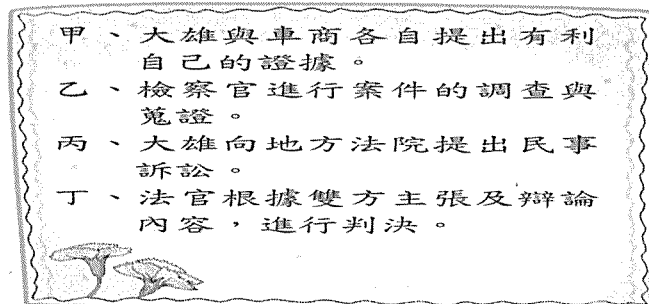 甲、大雄與車商各自提出有利
自己的證據。
乙、檢察官進行案件的調查與
蒐證。
丙、大雄向地方法院提出民事
訴訟。
丁、法官根據雙方主張及辯論
內容，進行判決。